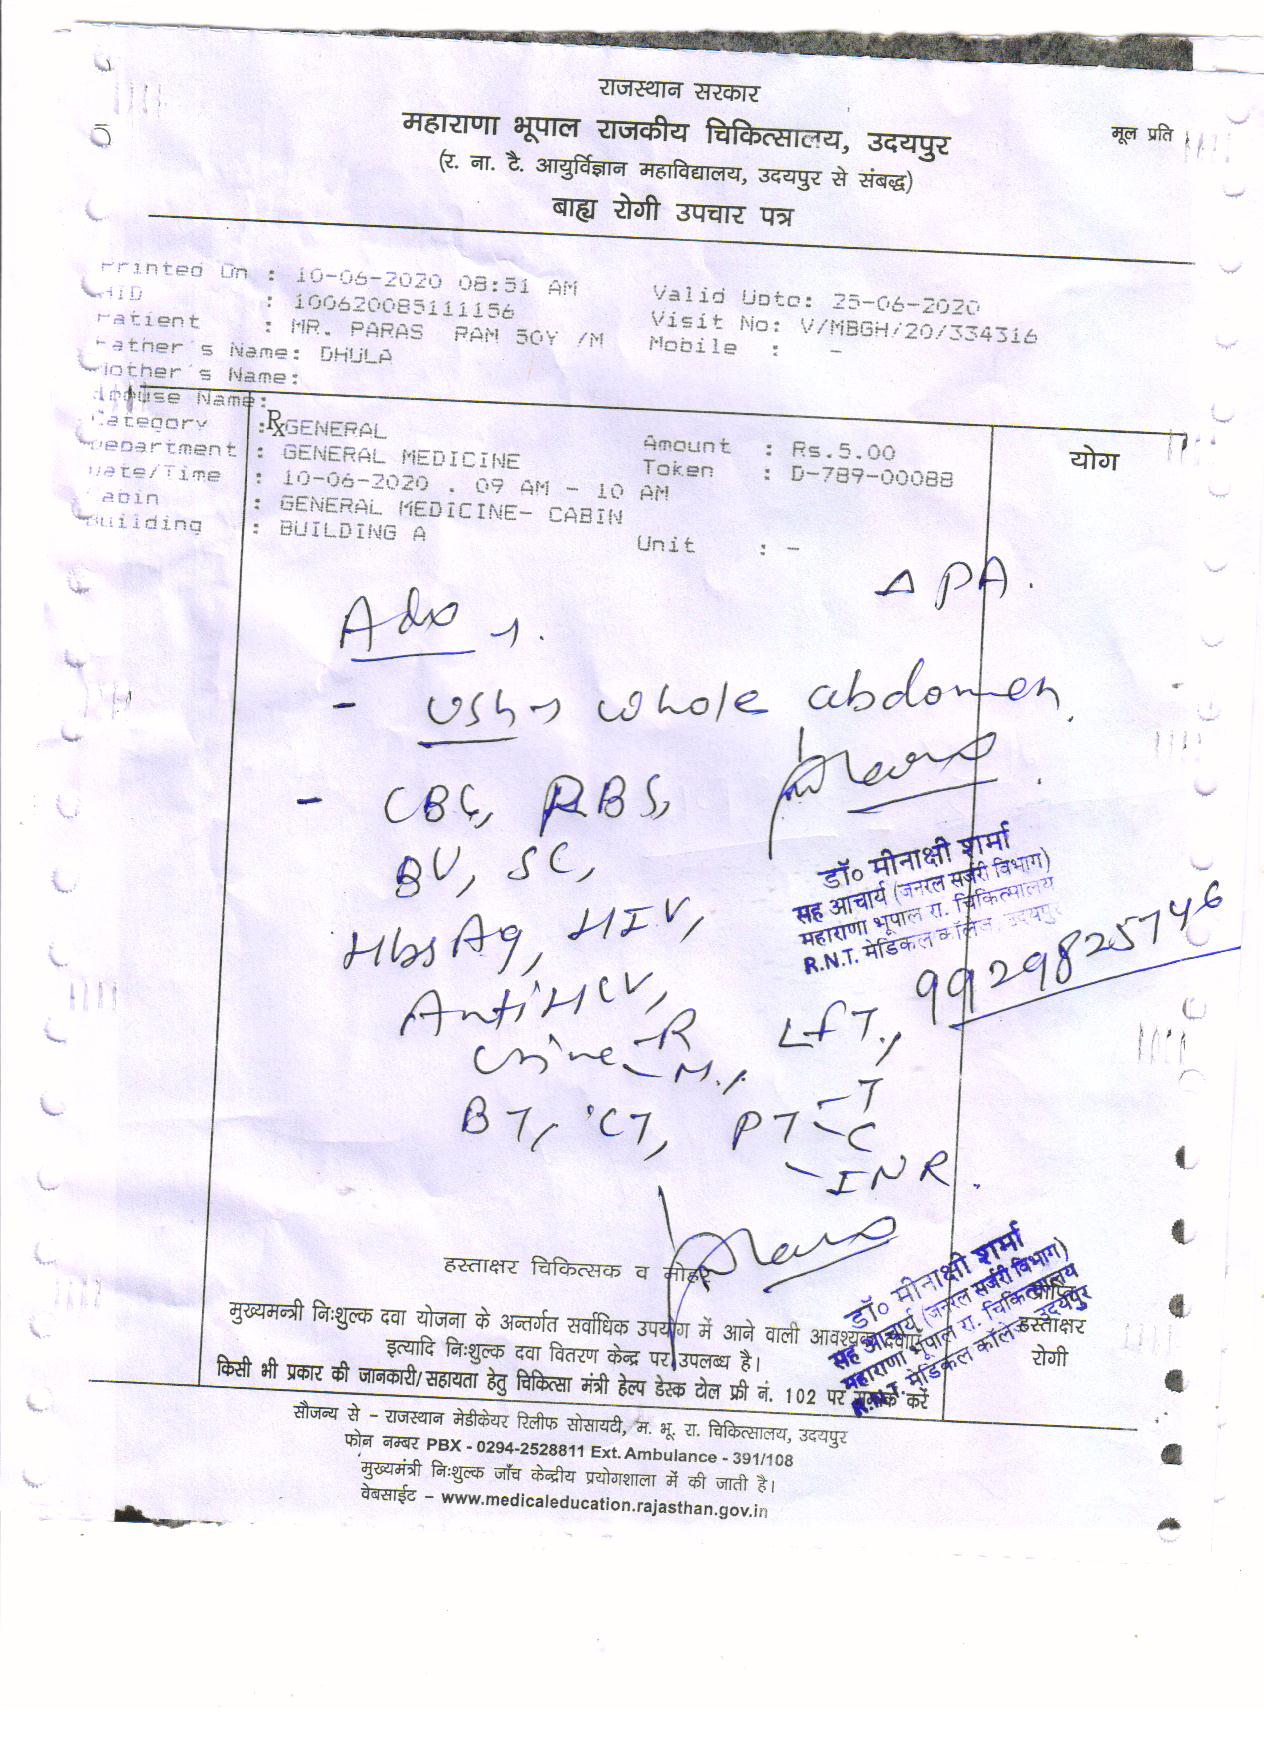 राजस्थान सरकार
महाराणा भूपाल राजकीय चिकित्सालय, उदयपुर
मूल प्रति
(र. ना. टै. आयुर्विज्ञान महाविद्यालय, उदयपुर से संबद्ध)
बाह्य रोगी उपचार पत्र
Printed On : 10-06-2020 08:51 AM Valid Upto: 25-06-2020
: 100620085111156 Visit No: V/MBGH/20/334316
Patient : MR. PARAS RAM 50Y /M Mobile : -
Father's Name: DHULA
Mother's Name:
Spouse Name:
Category :RxGENERAL Amount : Rs.5.00
Department : GENERAL MEDICINE Token : D-789-00088
योग
Date/Time : 10-06-2020 . 09 AM - 10 AM
Cabin : GENERAL MEDICINE- CABIN
Building : BUILDING A Unit : -
Δ PA.
- whole abdomen.
- CBC, RBS,
डॉ० मीनाक्षी शर्मा
सह आचार्य (जनरल सर्जरी विभाग)
महाराणा भूपाल रा. चिकित्सालय
R.N.T. मेडिकल कॉलेज, उदयपुर
BU, SC,
HbsAg, HIV,
9929825746
Anti HCV,
Urine -R LFT,
- M.,
BT, CT, PT - T
- C
- INR.
हस्ताक्षर चिकित्सक व मोहर
डॉ० मीनाक्षी शर्मा
सह आचार्य (जनरल सर्जरी विभाग)
महाराणा भूपाल रा. चिकित्सालय
R.N.T. मेडिकल कॉलेज, उदयपुर
मुख्यमन्त्री निःशुल्क दवा योजना के अन्तर्गत सर्वाधिक उपयोग में आने वाली आवश्यक
हस्ताक्षर
इत्यादि निःशुल्क दवा वितरण केन्द्र पर उपलब्ध है।
रोगी
किसी भी प्रकार की जानकारी/सहायता हेतु चिकित्सा मंत्री हेल्प डेस्क टोल फ्री नं. 102 पर करें
सौजन्य से – राजस्थान मेडीकेयर रिलीफ सोसायटी, म. भू. रा. चिकित्सालय, उदयपुर
फोन नम्बर PBX - 0294-2528811 Ext. Ambulance - 391/108
मुख्यमंत्री निःशुल्क जाँच केन्द्रीय प्रयोगशाला में की जाती है।
वेबसाईट – www.medicaleducation.rajasthan.gov.in